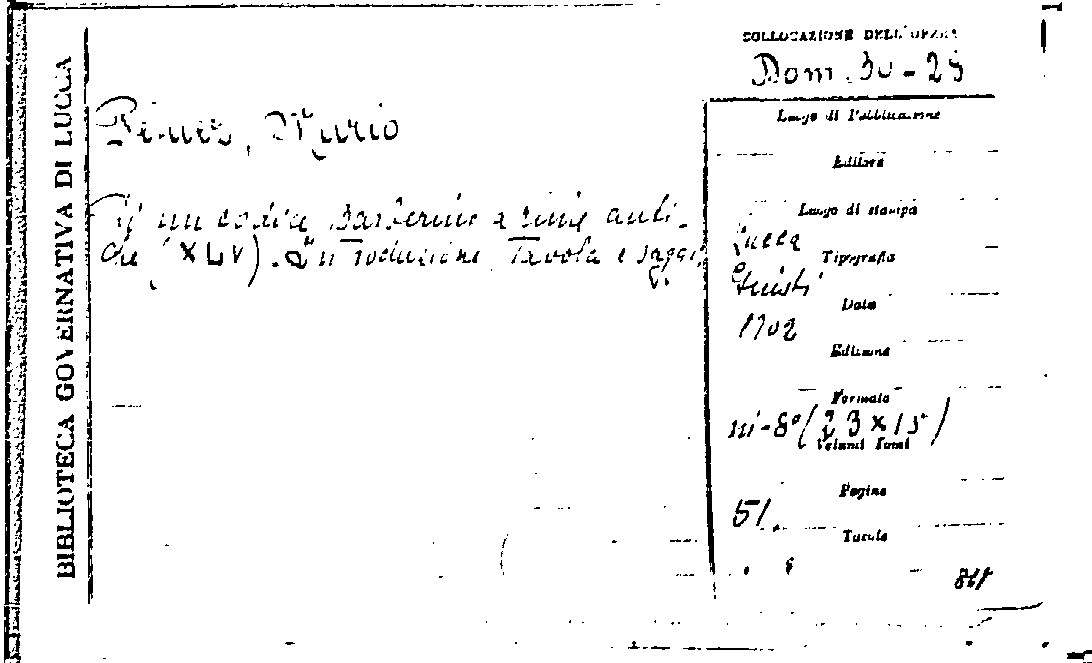 BIBLIOTECA GOVERNATIVA DI LUCCA
COLLOCAZIONE DELL'OPERA
Dom. 30-25
Mario
un codice Barberino rime anti-
che (XLV). Introduzione Tavola e saggi
Luogo di Pubblicazione
Editore
Luogo di stampa
Lucca
Tipografia
Giusti
Data
1902
Edizione
Formato
in-8° (23x15)
Volumi Tomi
Pagine
51.
Tavole